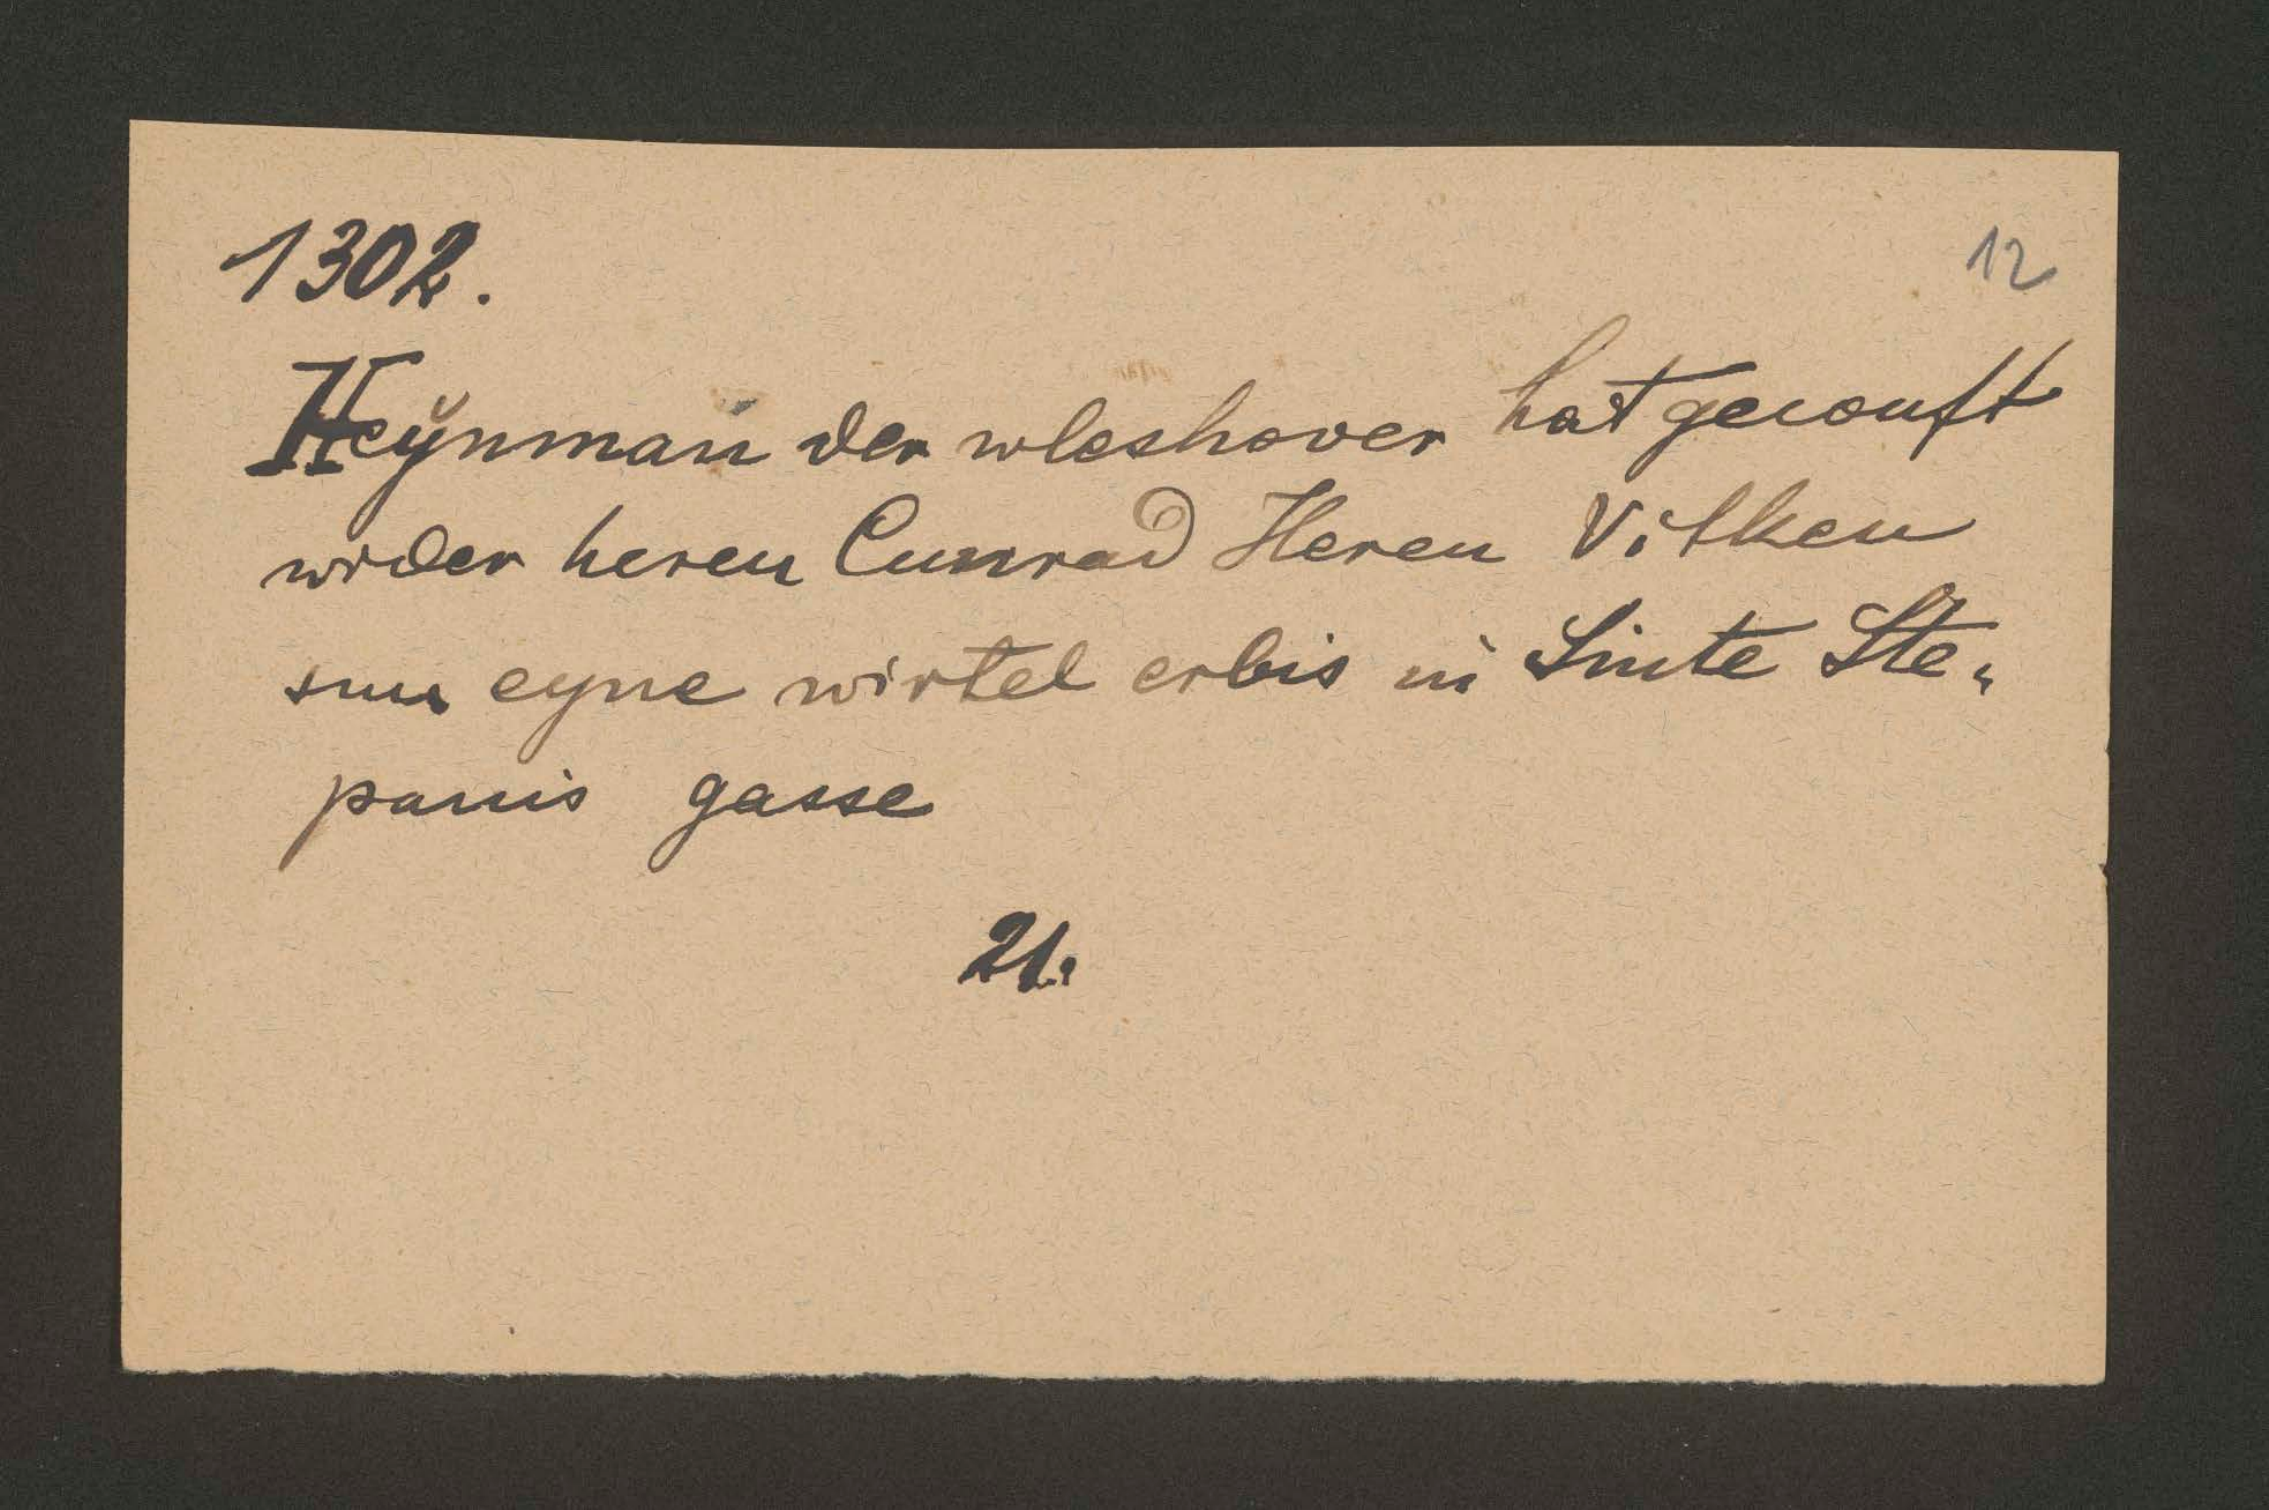 1302.
12
Heynman der wleshover hat gecouft
wider heren Cunrad Heren Vitken
sun eyne wirtel erbis in Sinte Ste„
panis gasse
21.